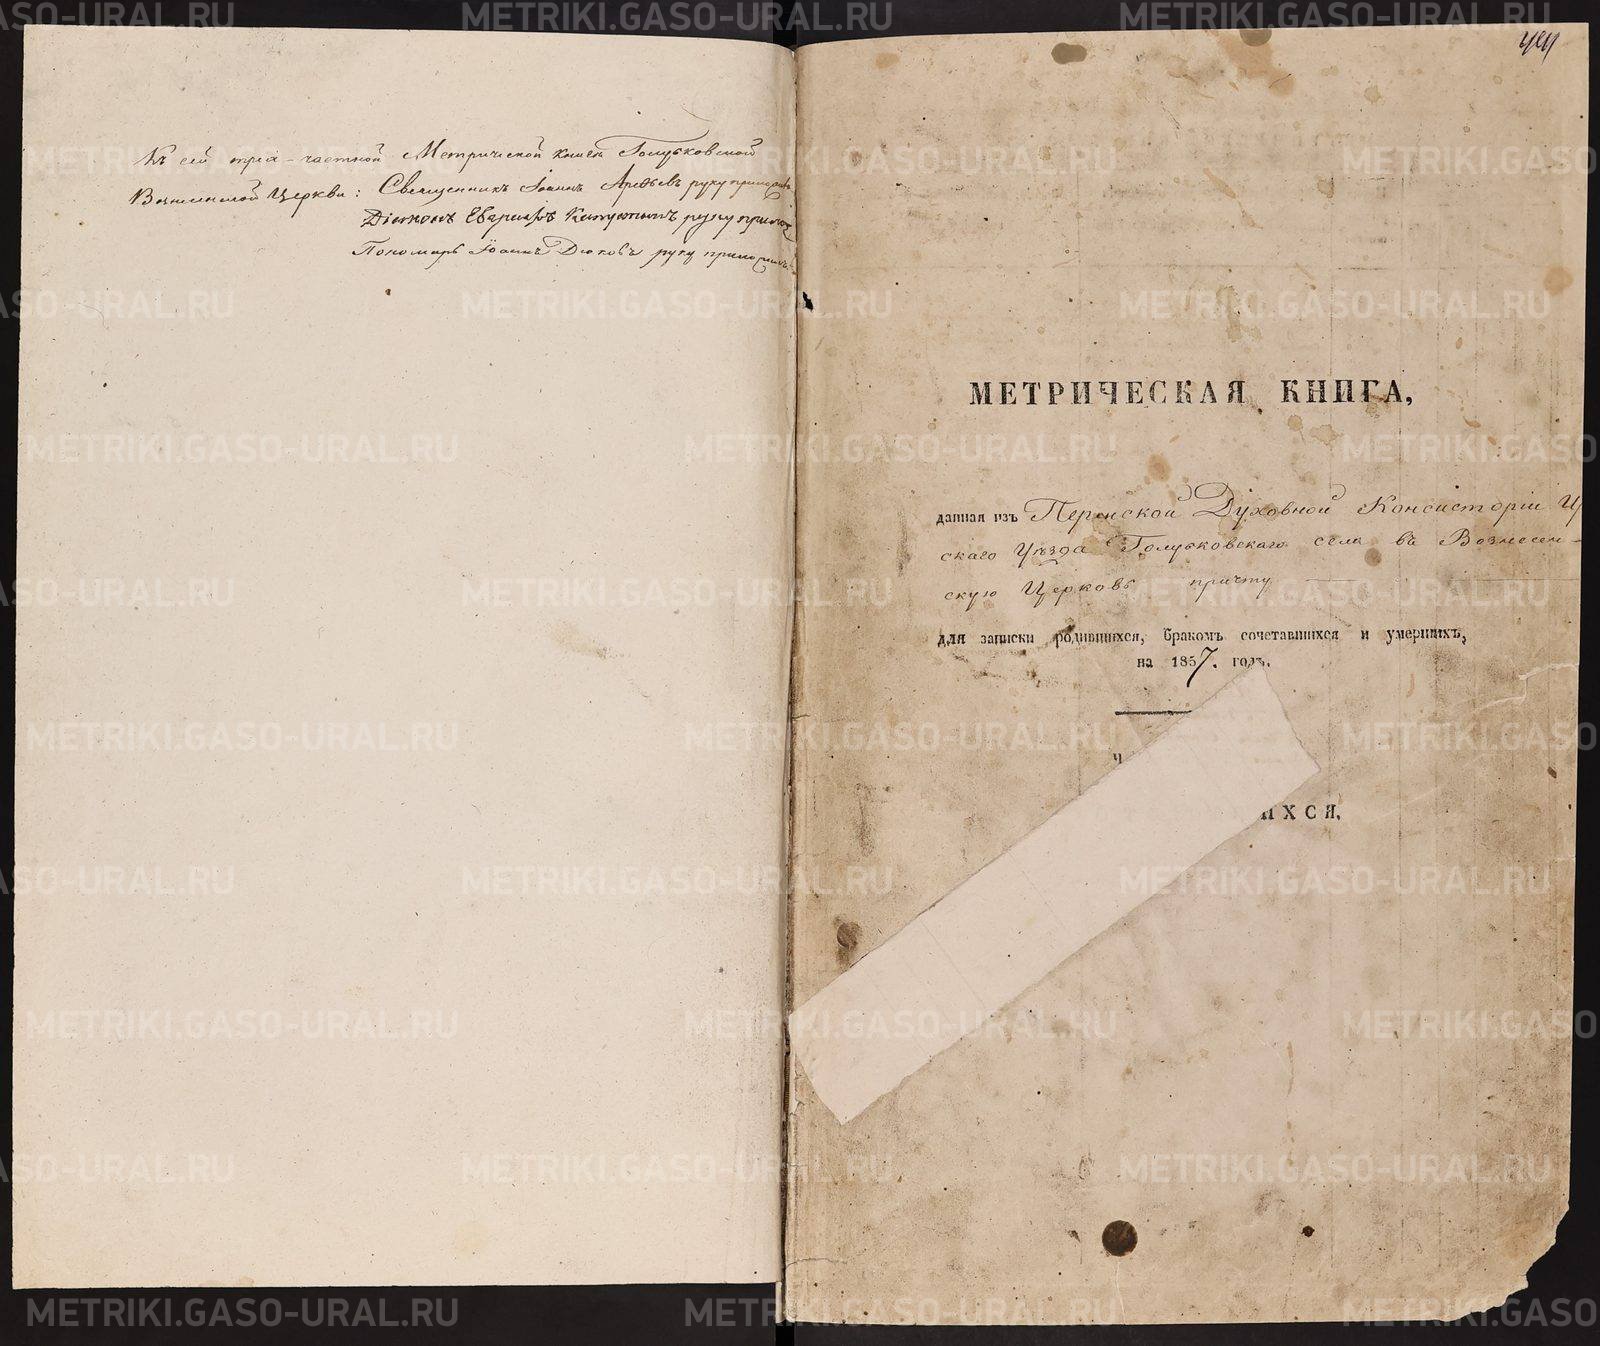 Къ сей трех-частной Метрической книге Голубковской
Вознесенской Церкви: Священникъ Іоаннъ руку приложилъ
Діаконъ руку приложи
Пономарь Іоаннъ Дюковъ руку приложилъ
МЕТРИЧЕСКАЯ КНИГА,
данная изъ Пермской Духовной Консисторіи
скаго Уѣзда Голубковскаго села въ Вознесен-
скую Церковь причту
для записи родившихся, бракомъ сочетавшихся и умершихъ,
на 1857. годъ.
Ч
ИХСЯ.
METRIKI.GASO-URAL.RU